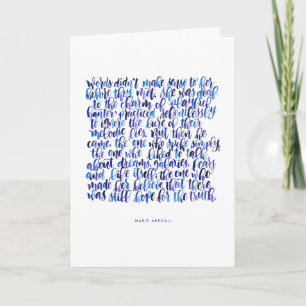 words didn't make sense to her
before they met. she was deaf
to the charm of playful
banter, practiced relentlessly
to ignore the lure of their
melodic lies. but then he
came. the one who spoke simply,
the one who liked to talk
about dreams, galactic cargos
and life itself; the one who
made her believe that there
was still hope for the truth.
MARIE ABEGAIL